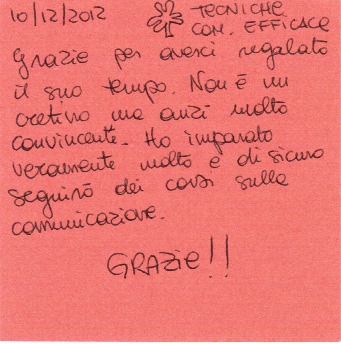 10/12/2012
TECNICHE
COM. EFFICACE
Grazie per averci regalato
il suo tempo. Non è un
cretino ma anzi molto
convincente. Ho imparato
veramente molto e di sicuro
seguirò dei corsi sulla
comunicazione.
GRAZIE!!